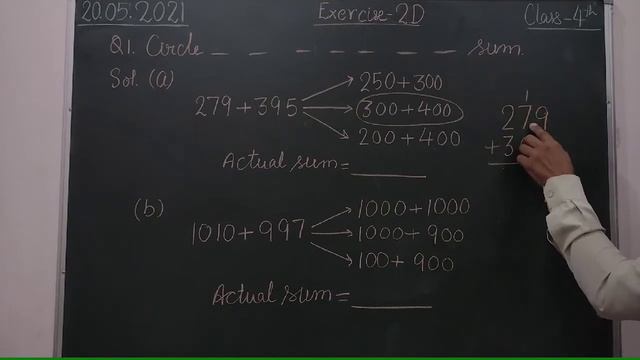 20.05.2021 Exercise-2D Class-4th
Q1. Circle _ _ _ _ _ _ _ sum.
Sol. (a)
250+300
279+395 300+400
200+400
Actual sum = ______
1
279
+3
(b)
1000+1000
1010+997 1000+900
100+900
Actual sum = ______